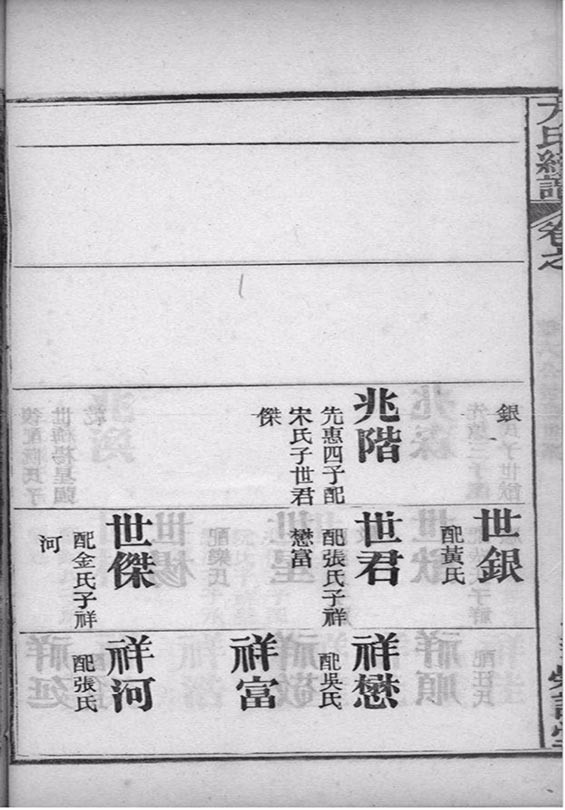 卷之
銀
兆階
先惠四子配
宋氏子世君
傑
世銀
配黃氏
世君
配張氏子祥
懋富
世傑
配金氏子祥
河
祥懋
配吳氏
祥富
祥河
配張氏